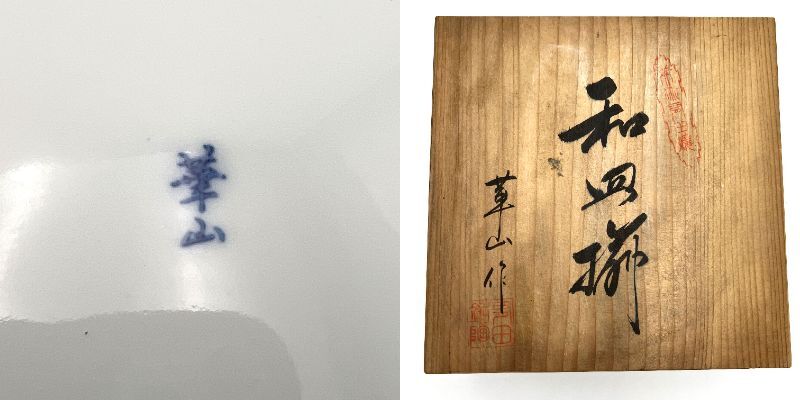 華山
和皿揃
華山作